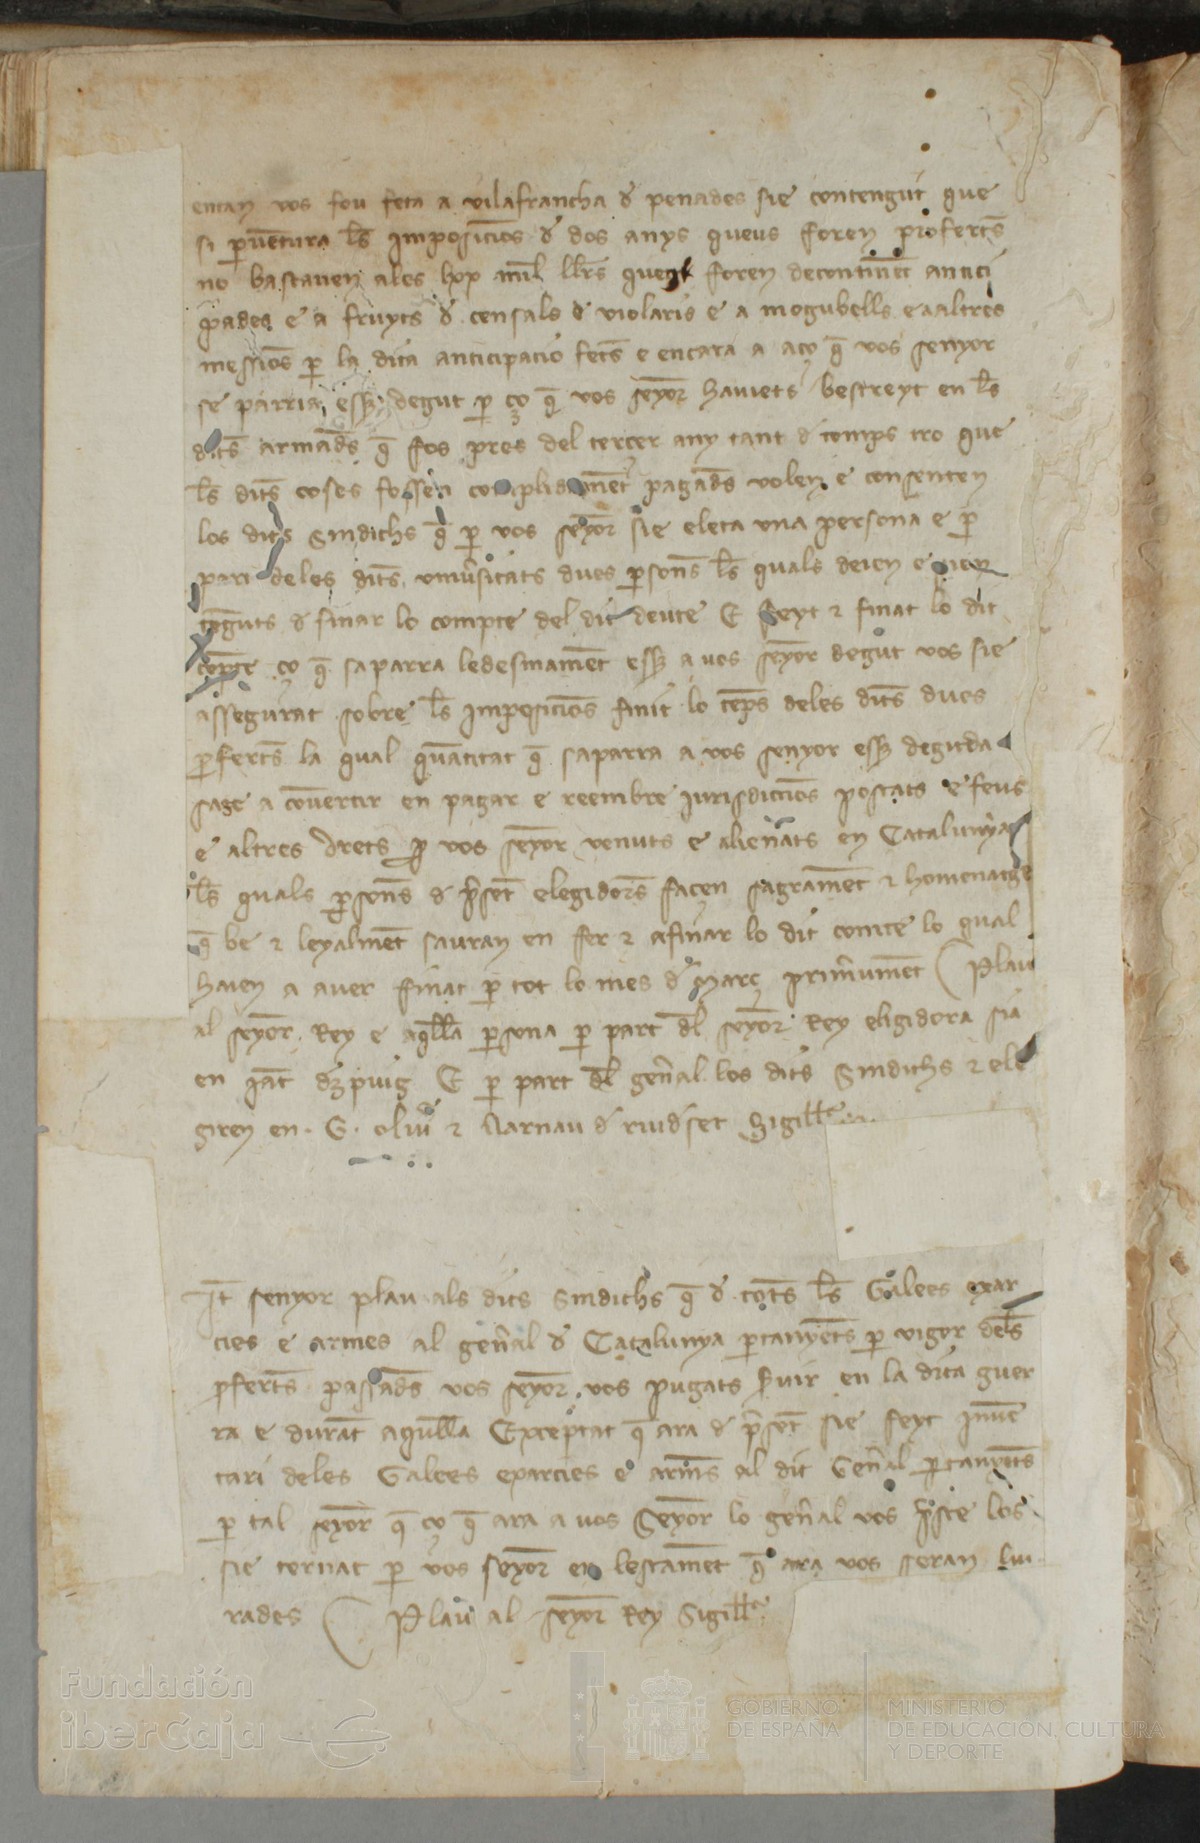 entany vos fou feta a vilafrancha d penades sie contengut que
si pventura les imposicions d dos anys queus foren profertes
no bastaven ales lxx mil llrs queus foren decontinent antici
pades e a fruyts d censals e violaris e a mogubells e a altres
messions p la dita anticipacio fetes e encara a aço q vos senyor
se parria esser degut p ço q vos senyor haviets bestreyt en les
dites armades q fos pres del tercer any tant d temps tro que
les dites coses fossen complidament pagades volen e consenten
los dits Sindichs q p vos senyor sie eleta una persona e p
part deles dites universitats dues persones les quals deien e sien
tenguts d finar lo compte del dit deute E feyt e finat lo dit
compte ço q saparra ledesmament esser a vos senyor degut vos sie
assegurat sobre les imposicions finit lo temps deles dites dues
profertes la qual quantitat q saparra a vos senyor esser deguda
sage a convertir en pagar e reembre jurisdiccions postats e feus
e altres drets p vos senyor venuts e alienats en Catalunya
les quals persones d present elegidores facen sagrament e homenatge
q be e leyalment sauran en fer e afinar lo dit comte lo qual
haien a aver finat p tot lo mes d Març primervinent Plau
al senyor Rey e aquella persona p part del senyor Rey eligidora sia
en Jac dezpuig E p part del general los dits Sindichs ele
giren en G. oliver e Narnau d riudset Sigillo
It senyor plau als dits Sindichs q d totes les Galees exar
cies e armes al general d Catalunya ptanyents p vigor deles
pfertes passades vos senyor vos pugats servir en la dita guer
ra e durant aquella Exceptat q ara d present sie feyt Inven
tari deles Galees exarcies e armes al dit General ptanyents
p tal senyor q ço q ara a vos Senyor lo general vos preste los
sie tornat p vos senyor en lestament q ara vos seran liu
rades Plau al senyor Rey Sigillo
Fundación
iberCaja
GOBIERNO
DE ESPAÑA
MINISTERIO
DE EDUCACIÓN, CULTURA
Y DEPORTE